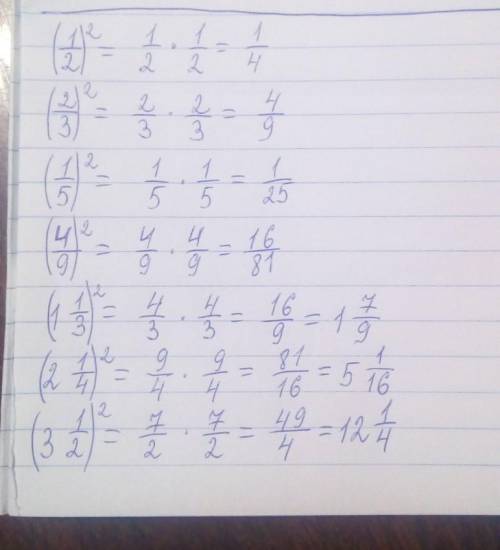 (1/2)² = 1/2 · 1/2 = 1/4
(2/3)² = 2/3 · 2/3 = 4/9
(1/5)² = 1/5 · 1/5 = 1/25
(4/9)² = 4/9 · 4/9 = 16/81
(1 1/3)² = 4/3 · 4/3 = 16/9 = 1 7/9
(2 1/4)² = 9/4 · 9/4 = 81/16 = 5 1/16
(3 1/2)² = 7/2 · 7/2 = 49/4 = 12 1/4